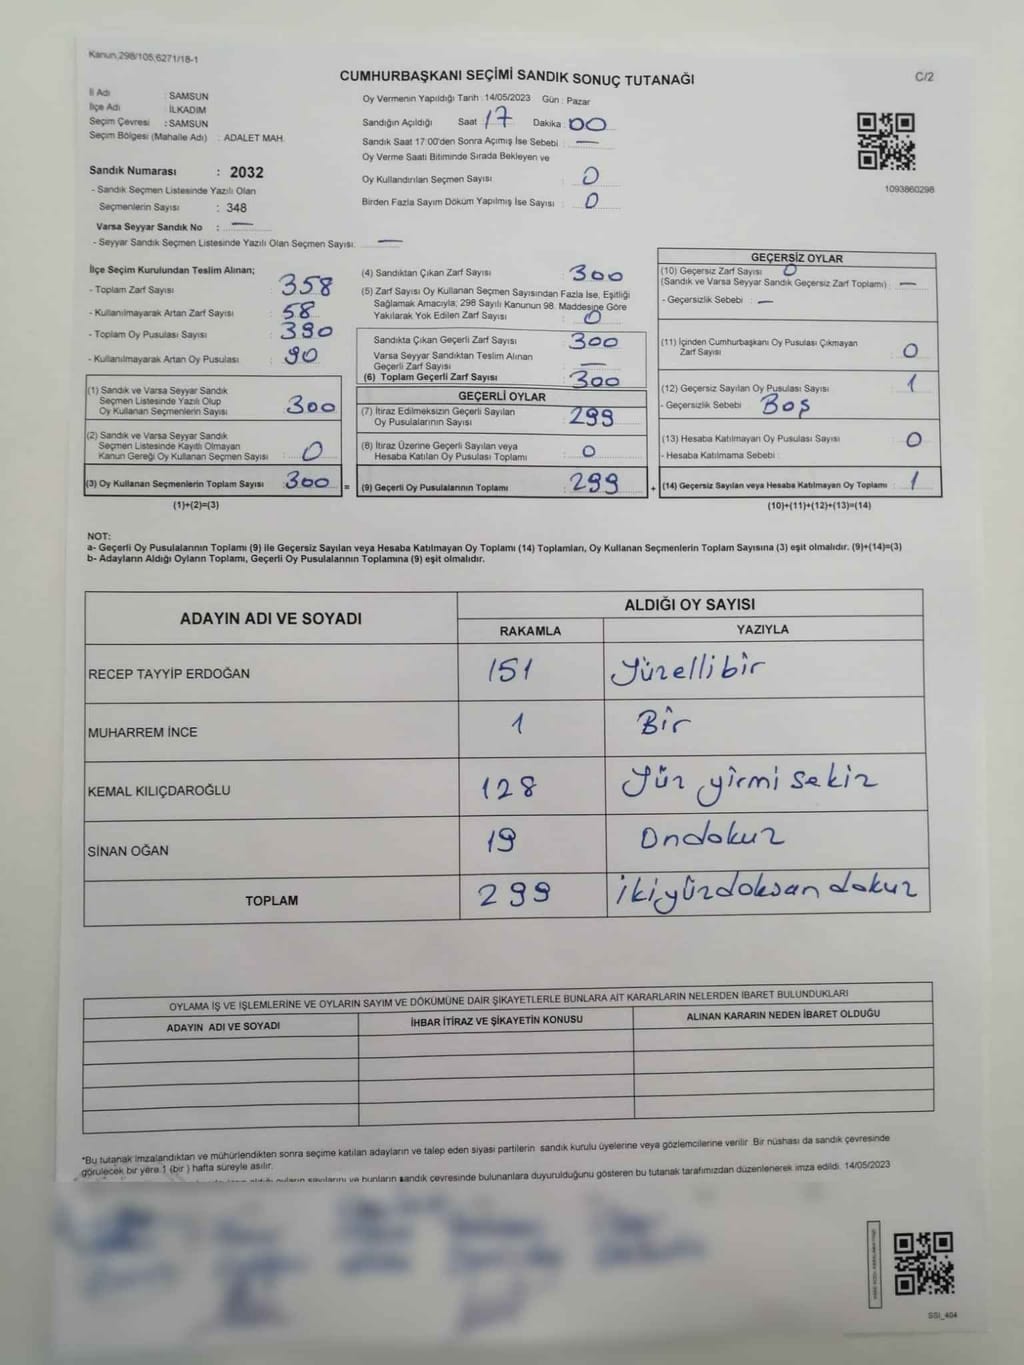 Kanun,298/105,6271/18-1
C/2
CUMHURBAŞKANI SEÇİMİ SANDIK SONUÇ TUTANAĞI
İl Adı : SAMSUN
İlçe Adı : İLKADIM
Seçim Çevresi : SAMSUN
Seçim Bölgesi (Mahalle Adı) : ADALET MAH.
Sandık Numarası : 2032
- Sandık Seçmen Listesinde Yazılı Olan
Seçmenlerin Sayısı : 348
Varsa Seyyar Sandık No : —
- Seyyar Sandık Seçmen Listesinde Yazılı Olan Seçmen Sayısı: —
Oy Vermenin Yapıldığı Tarih : 14/05/2023 Gün : Pazar
Sandığın Açıldığı Saat : 17 Dakika : 00
Sandık Saat 17:00'den Sonra Açımış İse Sebebi : —
Oy Verme Saati Bitiminde Sırada Bekleyen ve
Oy Kullandırılan Seçmen Sayısı : 0
Birden Fazla Sayım Döküm Yapılmış İse Sayısı : 0
1093860298
İlçe Seçim Kurulundan Teslim Alınan;
- Toplam Zarf Sayısı : 358
- Kullanılmayarak Artan Zarf Sayısı : 58
- Toplam Oy Pusulası Sayısı : 390
- Kullanılmayarak Artan Oy Pusulası : 90
(1) Sandık ve Varsa Seyyar Sandık
Seçmen Listesinde Yazılı Olup
Oy Kullanan Seçmenlerin Sayısı : 300
(2) Sandık ve Varsa Seyyar Sandık
Seçmen Listesinde Kayıtlı Olmayan
Kanun Gereği Oy Kullanan Seçmen Sayısı : 0
(3) Oy Kullanan Seçmenlerin Toplam Sayısı : 300 =
(1)+(2)=(3)
(4) Sandıktan Çıkan Zarf Sayısı : 300
(5) Zarf Sayısı Oy Kullanan Seçmen Sayısından Fazla İse, Eşitliği
Sağlamak Amacıyla; 298 Sayılı Kanunun 98. Maddesine Göre
Yakılarak Yok Edilen Zarf Sayısı : 0
Sandıkta Çıkan Geçerli Zarf Sayısı : 300
Varsa Seyyar Sandıktan Teslim Alınan
Geçerli Zarf Sayısı : —
(6) Toplam Geçerli Zarf Sayısı : 300
GEÇERLİ OYLAR
(7) İtiraz Edilmeksizin Geçerli Sayılan
Oy Pusulalarının Sayısı : 299
(8) İtiraz Üzerine Geçerli Sayılan veya
Hesaba Katılan Oy Pusulası Toplamı : 0
(9) Geçerli Oy Pusulalarının Toplamı : 299 +
GEÇERSİZ OYLAR
(10) Geçersiz Zarf Sayısı : 0
(Sandık ve Varsa Seyyar Sandık Geçersiz Zarf Toplamı) : —
- Geçersizlik Sebebi : —
(11) İçinden Cumhurbaşkanı Oy Pusulası Çıkmayan
Zarf Sayısı : 0
(12) Geçersiz Sayılan Oy Pusulası Sayısı : 1
- Geçersizlik Sebebi : Boş
(13) Hesaba Katılmayan Oy Pusulası Sayısı : 0
- Hesaba Katılmama Sebebi :
(14) Geçersiz Sayılan veya Hesaba Katılmayan Oy Toplamı : 1
(10)+(11)+(12)+(13)=(14)
NOT:
a- Geçerli Oy Pusulalarının Toplamı (9) ile Geçersiz Sayılan veya Hesaba Katılmayan Oy Toplamı (14) Toplamları, Oy Kullanan Seçmenlerin Toplam Sayısına (3) eşit olmalıdır. (9)+(14)=(3)
b- Adayların Aldığı Oyların Toplamı, Geçerli Oy Pusulalarının Toplamına (9) eşit olmalıdır.
ADAYIN ADI VE SOYADI
ALDIĞI OY SAYISI
RAKAMLA YAZIYLA
RECEP TAYYİP ERDOĞAN 151 Yüzellibir
MUHARREM İNCE 1 Bir
KEMAL KILIÇDAROĞLU 128 Yüz yirmi sekiz
SİNAN OĞAN 19 Ondokuz
TOPLAM 299 ikiyüzdoksan dokuz
OYLAMA İŞ VE İŞLEMLERİNE VE OYLARIN SAYIM VE DÖKÜMÜNE DAİR ŞİKAYETLERLE BUNLARA AİT KARARLARIN NELERDEN İBARET BULUNDUKLARI
ADAYIN ADI VE SOYADI İHBAR İTİRAZ VE ŞİKAYETİN KONUSU ALINAN KARARIN NEDEN İBARET OLDUĞU
*Bu tutanak imzalandıktan ve mühürlendikten sonra seçime katılan adayların ve talep eden siyasi partilerin sandık kurulu üyelerine veya gözlemcilerine verilir. Bir nüshası da sandık çevresinde
görülecek bir yere 1 (bir ) hafta süreyle asılır.
oyların sayılarını ve bunların sandık çevresinde bulunanlara duyurulduğunu gösteren bu tutanak tarafımızdan düzenlenerek imza edildi. 14/05/2023
SSI_404